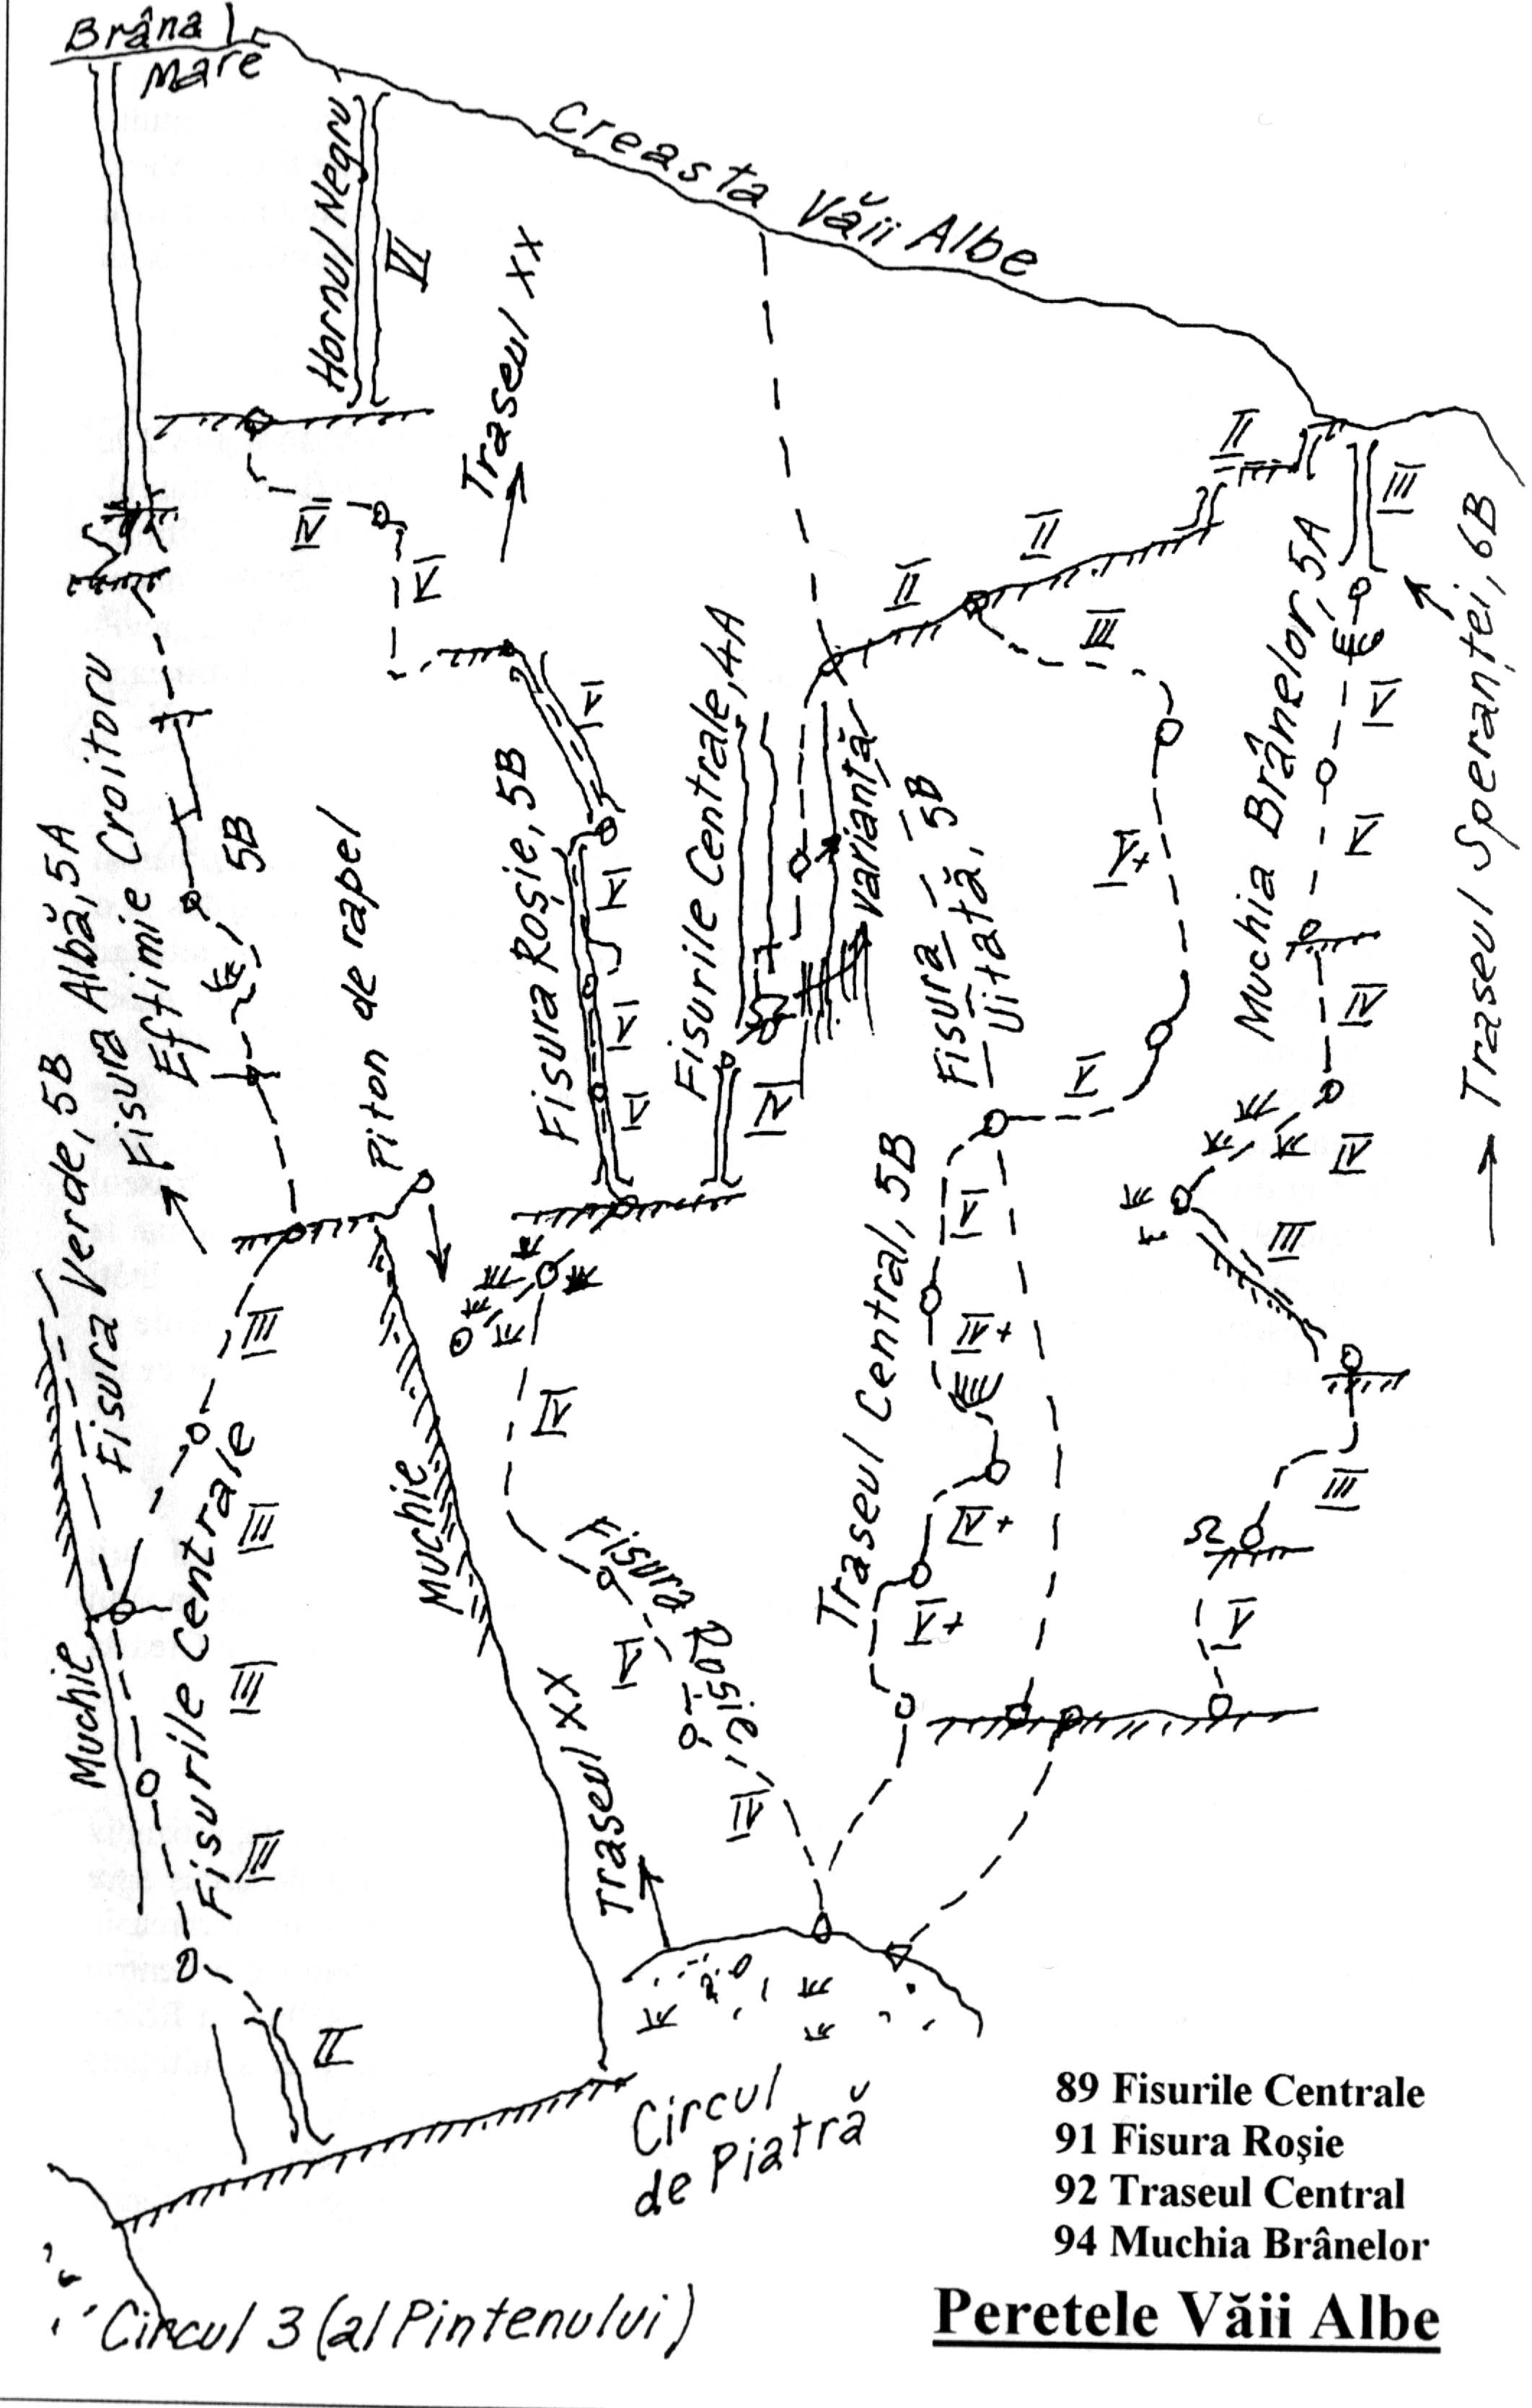 Brâna
Mare
Creasta Văii Albe
Hornul Negru
VI
Traseul XX
IV
V
II
II
II
III
III
V
V
IV
IV
III
III
V
Muchia Brânelor, 5A
Traseul Speranței, 6B
Fisura Verde, 5B
Fisura Albă, 5A
Eftimie Croitoru
5B
Piton de rapel
Fisura Roșie, 5B
VI
VI
V
V
Fisurile Centrale, 4A
IV
variantă
Fisura
Uitată, 5B
V+
V
Traseul Central, 5B
VI
IV+
IV+
V+
Muchie
Fisurile Centrale
III
III
III
III
II
Muchie
Traseul XX
IV
Fisura Roșie,
V
IV
Circul
de Piatră
Circul 3 (al Pintenului)
89 Fisurile Centrale
91 Fisura Roşie
92 Traseul Central
94 Muchia Brânelor
Peretele Văii Albe